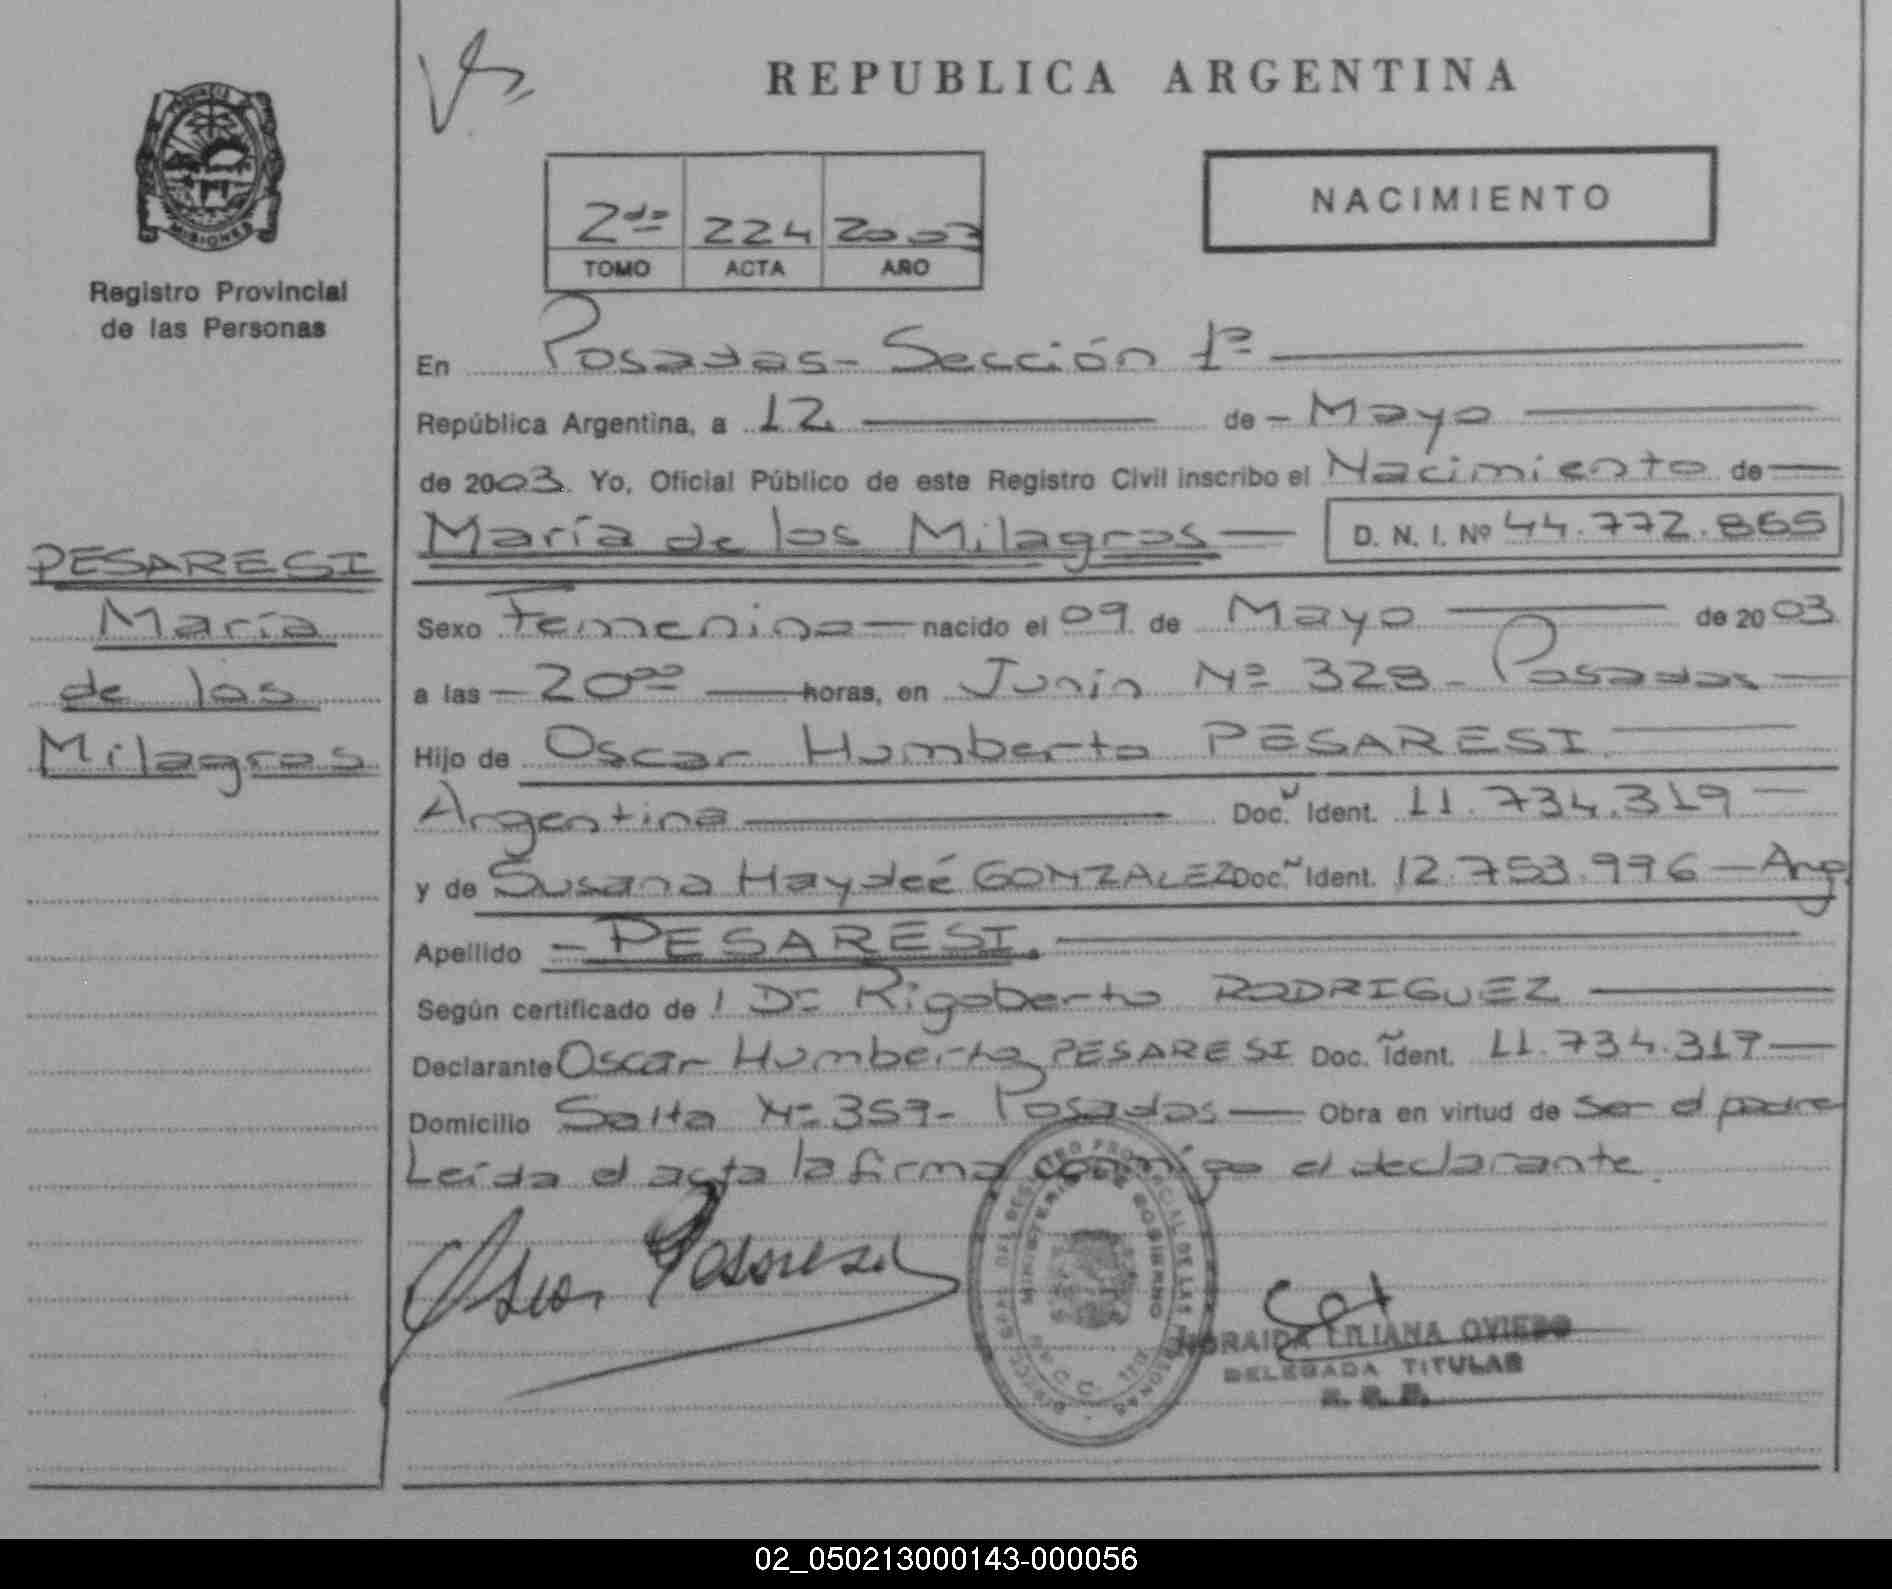 REPUBLICA ARGENTINA
PROVINCIA DE
MISIONES
Registro Provincial
de las Personas
2do 224 2003
TOMO ACTA AÑO
NACIMIENTO
En Posadas - Sección 1ª
República Argentina, a 12 de - Mayo
de 2003 Yo, Oficial Público de este Registro Civil inscribo el Nacimiento de
María de los Milagros D. N. I. Nº 44.772.865
PESARESI
María
de los
Milagros
Sexo Femenino nacido el 09 de Mayo de 2003
a las - 20⁰⁰ horas, en Junín Nº 328 - Posadas
Hijo de Oscar Humberto PESARESI
Argentina Doc. Ident. 11.734.319
y de Susana Haydeé GONZALEZ Doc. Ident. 12.753.996 - Arg.
Apellido - PESARESI.
Según certificado de / Dr Rigoberto RODRIGUEZ
Declarante Oscar Humberto PESARESI Doc. Ident. 11.734.319
Domicilio Salta Nº 359 - Posadas Obra en virtud de ser el padre
Leída el acta la firma conmigo el declarante.
Oscar Pesaresi
REGISTRO PROVINCIAL DE LAS PERSONAS
MINISTERIO DE GOBIERNO
LILIANA OVIEDO
DELEGADA TITULAR
02_050213000143-000056